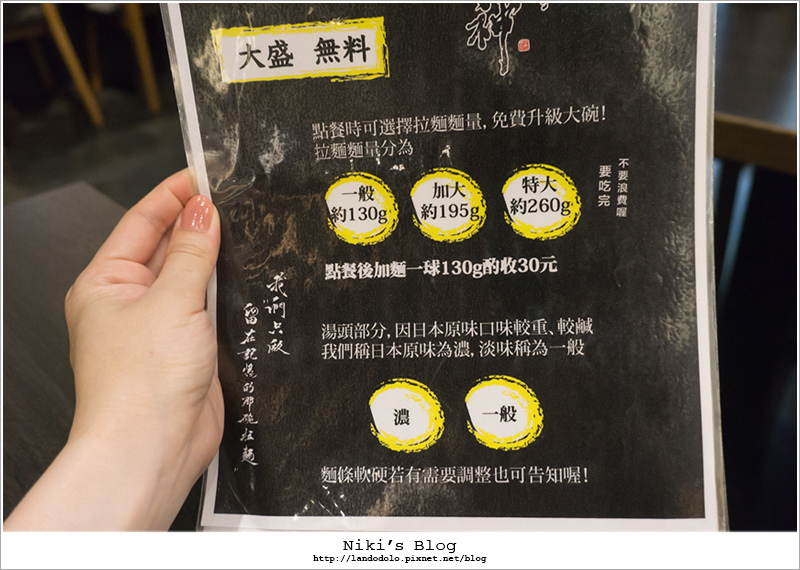 神
大盛 無料
點餐時可選擇拉麵麵量, 免費升級大碗!
拉麵麵量分為
一般
約130g
加大
約195g
特大
約260g
不要浪費喔
要吃完
點餐後加麵一球130g酌收30元
我們只敢
留在記憶的那碗拉麵
湯頭部分, 因日本原味口味較重、較鹹
我們稱日本原味為濃, 淡味稱為一般
濃
一般
麵條軟硬若有需要調整也可告知喔!
Niki's Blog
http://landodolo.pixnet.net/blog